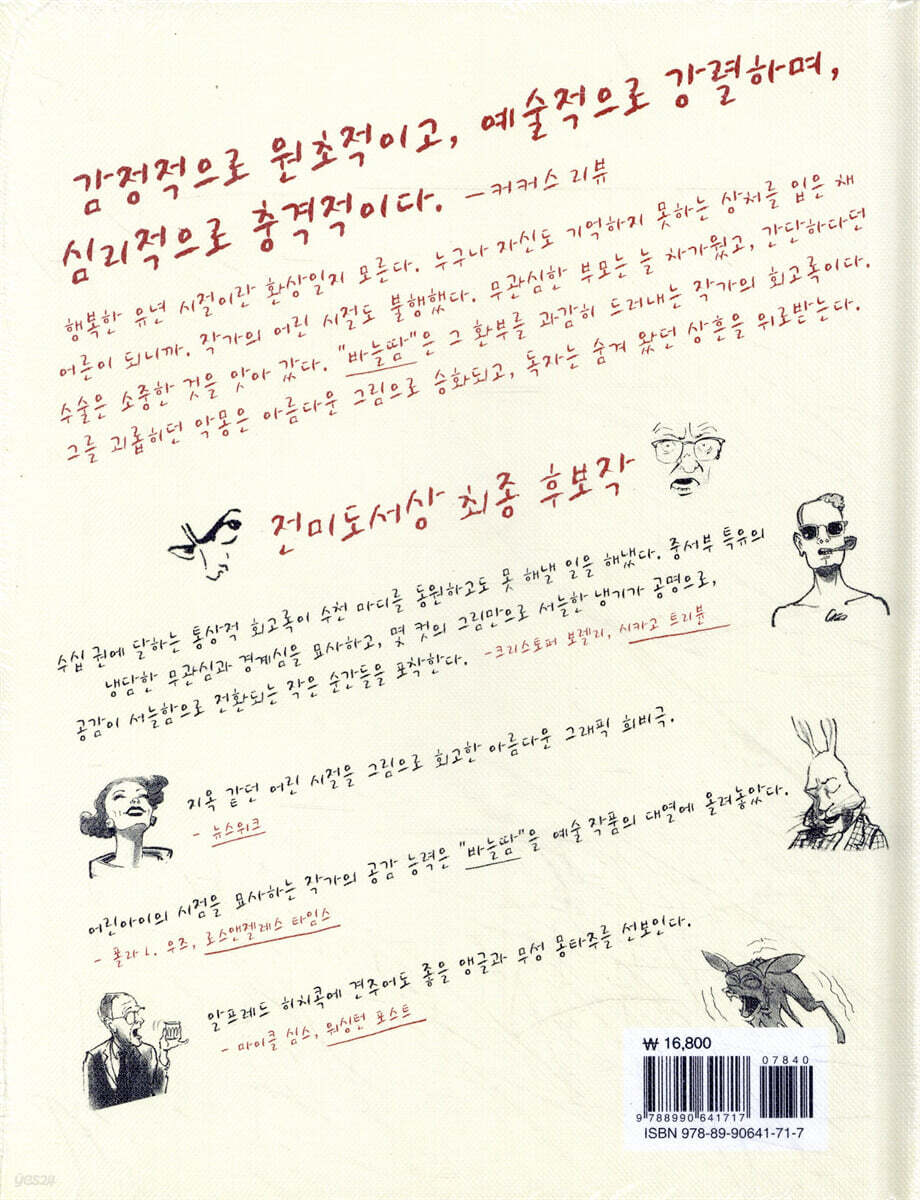 감정적으로 원초적이고, 예술적으로 강렬하며,
심리적으로 충격적이다. -커커스 리뷰
행복한 유년 시절이란 환상일지 모른다. 누구나 자신도 기억하지 못하는 상처를 입은 채
어른이 되니까. 작가의 어린 시절도 불행했다. 무관심한 부모는 늘 차가웠고, 간단하다던
수술은 소중한 것을 앗아 갔다. "바늘땀"은 그 환부를 과감히 드러내는 작가의 회고록이다.
그를 괴롭히던 악몽은 아름다운 그림으로 승화되고, 독자는 숨겨 왔던 상흔을 위로받는다.
전미도서상 최종 후보작
수십 권에 달하는 통상적 회고록이 수천 마디를 동원하고도 못 해낼 일을 해냈다. 중서부 특유의
냉담한 무관심과 경계심을 묘사하고, 몇 컷의 그림만으로 서늘한 냉기가 공명으로,
공감이 서늘함으로 전환되는 작은 순간들을 포착한다. -크리스토퍼 보렐리, 시카고 트리뷴
지옥 같던 어린 시절을 그림으로 회고한 아름다운 그래픽 희비극.
- 뉴스위크
어린아이의 시점을 묘사하는 작가의 공감 능력은 "바늘땀"을 예술 작품의 대열에 올려놓았다.
- 폴라 L. 우즈, 로스앤젤레스 타임스
알프레드 히치콕에 견주어도 좋을 앵글과 무성 몽타주를 선보인다.
- 마이클 심스, 워싱턴 포스트
₩ 16,800
07840
9 788990 641717
ISBN 978-89-90641-71-7
yes24